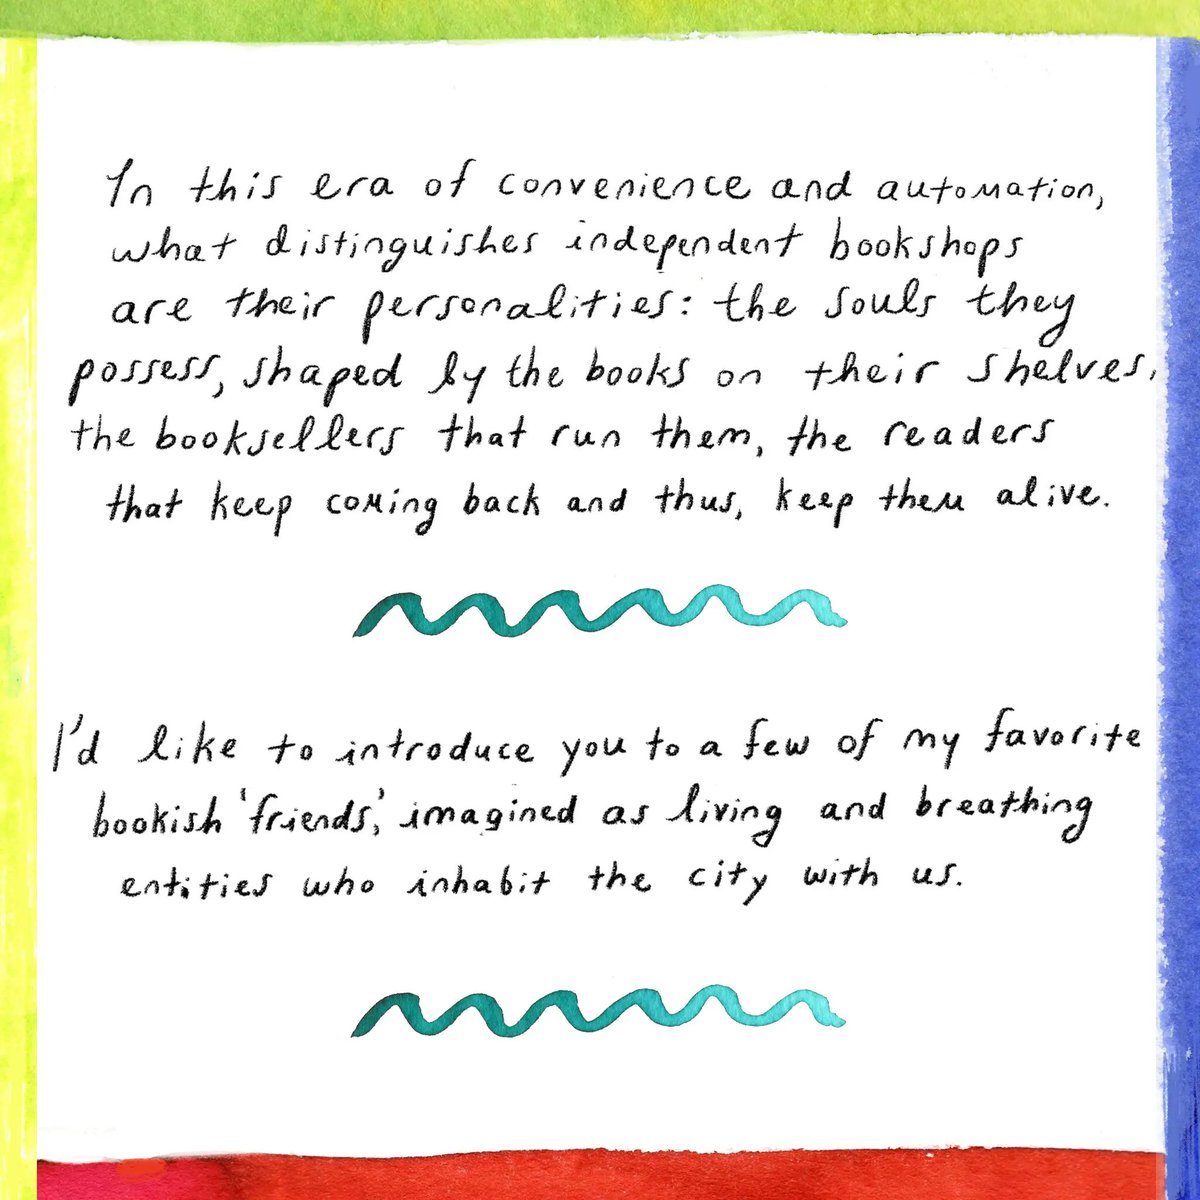 In this era of convenience and automation,
what distinguishes independent bookshops
are their personalities: the souls they
possess, shaped by the books on their shelves,
the booksellers that run them, the readers
that keep coming back and thus, keep them alive.
I'd like to introduce you to a few of my favorite
bookish 'friends,' imagined as living and breathing
entities who inhabit the city with us.